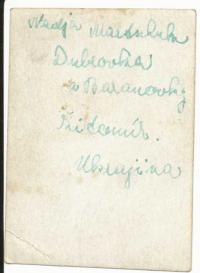 Nadja
Dubrovka
z Baranovky
Žitomir.
Ukrajina